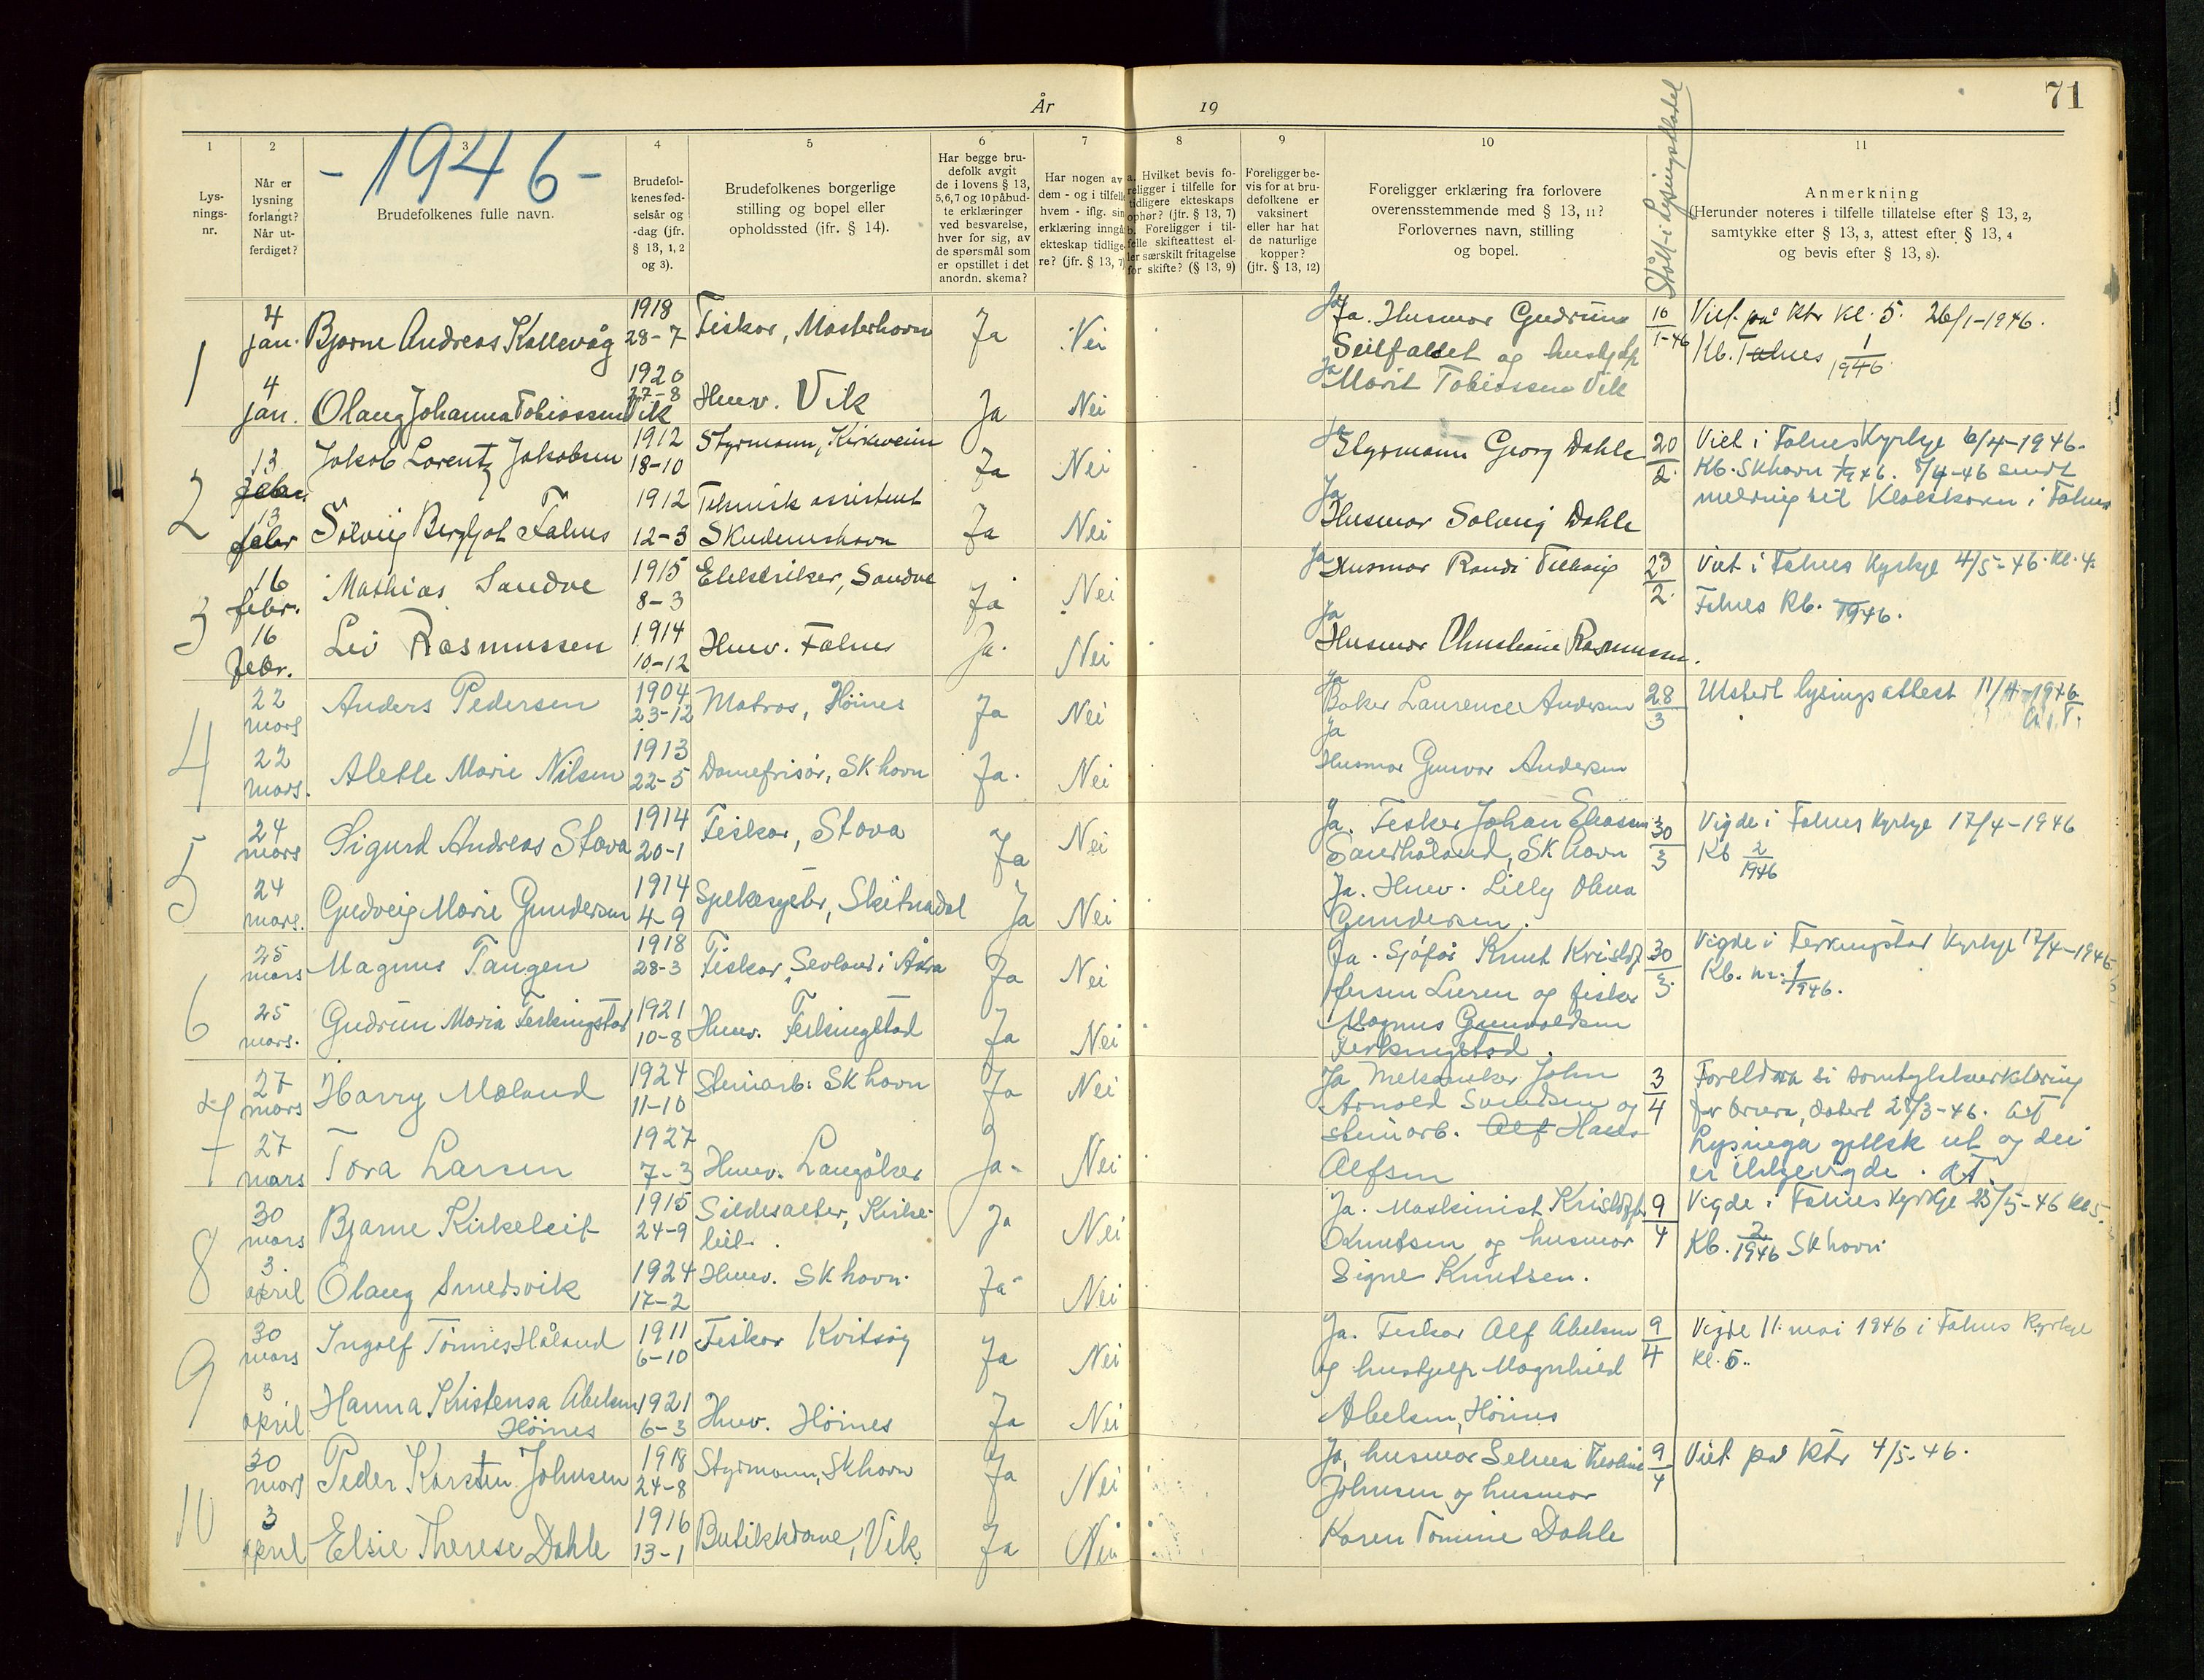 År 19
71
- 1946 -
1
Lys-
nings-
nr.
2
Når er
lysning
forlangt?
Når ut-
ferdiget?
3
Brudefolkenes fulle navn.
4
Brudefol-
kenes fød-
selsår og
-dag (jfr.
§ 13, 1, 2
og 3).
5
Brudefolkenes borgerlige
stilling og bopel eller
opholdssted (jfr. § 14).
6
Har begge bru-
defolk avgit
de i lovens § 13,
5, 6, 7 og 10 påbud-
te erklæringer
ved besvarelse,
hver for sig, av
de spørsmål som
er opstillet i det
anordn. skema?
7
Har nogen av
dem - og i tilfelle
hvem - iflg. sin
erklæring inngå
ekteskap tidlige-
re? (jfr. § 13, 7)
8
a. Hvilket bevis fo-
religger i tilfelle for
tidligere ekteskaps
ophør? (jfr. § 13, 7)
b. Foreligger i til-
felle skifteattest el-
ler særskilt fritagelse
for skifte? (§ 13, 9)
9
Foreligger be-
vis for at bru-
defolkene er
vaksinert
eller har hat
de naturlige
kopper?
(jfr. § 13, 12)
10
Foreligger erklæring fra forlovere
overensstemmende med § 13, 11?
Forlovernes navn, stilling
og bopel.
Stått i Lysingsbladet
11
Anmerkning
(Herunder noteres i tilfelle tillatelse efter § 13, 2,
samtykke efter § 13, 3, attest efter § 13, 4
og bevis efter § 13, 8).
1
4 jan. Bjarne Andreas Kallevåg 1918 28-7 Fiskar, Mosterhavn Ja Nei
4 jan. Olaug Johanna Tobiassen Vik 1920 27-8 Husv. Vik Ja Nei
Ja. Husmor Gudrun
Seilfaldet og hushjelp
Ja Marit Tobiassen Vik
10/1-46
Viet på Ktr kl. 5. 26/1-1946.
Kb. Falnes 1/1946
2
13 febr. Jakob Lorentz Jakobsen 1912 18-10 Styrmann, Kirkeveien Ja Nei
13 febr Solveig Bergljot Falnes 1912 12-3 Teknisk assistent Skudeneshavn Ja Nei
Ja Styrmann Georg Dahle
Ja Husmor Solveig Dahle
20/2
Viet i Falnes Kyrkje 6/4-1946.
Kb. Skhavn 1/1946. 8/4-46 sendt
melding til Klokkaren i Falnes
3
16 febr. Mathias Sandve 1915 8-3 Elektriker, Sandve Ja Nei
16 febr. Liv Rasmussen 1914 10-12 Husv. Falnes Ja Nei
Ja Husmor Randi
Ja Husmor Christiane Rasmussen.
23/2
Viet i Falnes Kyrkje 4/5-46. Kl. 4
Falnes Kb. 1946.
4
22 mars Anders Pedersen 1904 23-12 Matros, Höines Ja Nei
22 mars. Alette Marie Nilsen 1913 22-5 Damefrisør, Skhavn Ja. Nei
Ja Baker Laurence Andersen
Ja
Husmor Gunvor Andersen
28/3
Utstedt lysingsattest 11/4-1946
5
24 mars Sigurd Andreas Stava 1914 20-1 Fiskar, Stava Ja Nei
24 mars. Gudveig Marie Gundersen 1914 4-9 Skitnadal Ja Nei
Ja. Fisker Johan Eliassen
Sandhåland, Skhavn
Ja. Husv. Lilly Olena
Gundersen.
30/3
Vigde i Falnes Kyrkje 17/4-1946
Kb 2/1946
6
25 mars Magnus Tangen 1918 28-3 Fiskar, Sevland i Åkra Ja Nei
25 mars. Gudrun Maria Ferkingstad 1921 10-8 Husv. Ferkingstad Ja Nei
Ja. Sjåfør Knut Kristof-
fersen Liren og fisker
Magnus Gunvaldsen
Ferkingstad.
30/3
Vigde i Ferkingstad Kyrkje 17/4-1946
Kb. nr. 1/1946.
7
27 mars Harry Meland 1924 11-10 Steinarb. Skhavn Ja Nei
27 mars Tora Larsen 1927 7-3 Husv. Langåker Ja. Nei
Ja Mekaniker John
Arnold Svendsen og
steinarb. Alf Hans
Alfsen
3/4
Foreldra si samtykkeerklæring
for brura, datert 28/3-46. AT
Lysinga gjekk ut og dei
er ikkje vigde. AT.
8
30 mars Bjarne Kirkeleit 1915 24-9 Sildesalter, Kirke-
leit. Ja Nei
3 april Olaug Smedsvik 1924 17-2 Husv. Skhavn. Ja Nei
Ja. Maskinist Kristoffer
Knutsen og husmor
Signe Knutsen.
9/4
Vigde i Falnes Kyrkje 25/5-46 Kl 5.
Kb. 2/1946 Skhavn
9
30 mars Ingolf Tönnes Håland 1911 6-10 Fiskar Kvitsøy Ja Nei
3 april Hanna Kristensa Abelsen
Höines 1921 6-3 Husv. Höines Ja Nei
Ja. Fiskar Alf Abelsen
og hushjelp Magnhild
Abelsen, Höines
9/4
Vigde 11. mai 1946 i Falnes Kyrkje
Kl. 5.
10
30 mars Peder Karsten Johnsen 1918 24-8 Styrmann, Skhavn Ja Nei
3 april Elsie Therese Dahle 1916 13-1 Butikkdame, Vik Ja Nei
Ja, husmor Selma Theoline
Johnsen og husmor
Karen Tomine Dahle
9/4
Viet på Ktr 4/5-46.